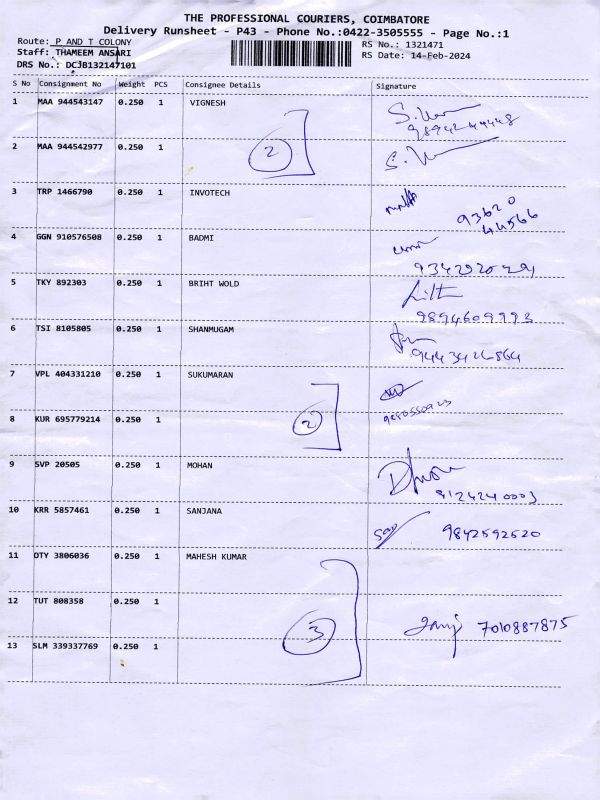 THE PROFESSIONAL COURIERS, COIMBATORE
Delivery Runsheet - P43 - Phone No.:0422-3505555 - Page No.:1
Route: P AND T COLONY
RS No.: 1321471
Staff: THAMEEM ANSARI
RS Date: 14-Feb-2024
DRS No.: DCJB132147101
S No Consignment No Weight PCS Consignee Details Signature
1 MAA 944543147 0.250 1 VIGNESH
2 MAA 944542977 0.250 1
2
3 TRP 1466790 0.250 1 INVOTECH
93620
44566
4 GGN 910576508 0.250 1 BADMI
5 TKY 892303 0.250 1 BRIHT WOLD
9894609993
6 TSI 8105805 0.250 1 SHANMUGAM
9443426864
7 VPL 404331210 0.250 1 SUKUMARAN
2
8 KUR 695779214 0.250 1
9 SVP 20505 0.250 1 MOHAN
9124240003
10 KRR 5857461 0.250 1 SANJANA
9842592620
11 OTY 3806036 0.250 1 MAHESH KUMAR
12 TUT 808358 0.250 1
7010887875
3
13 SLM 339337769 0.250 1